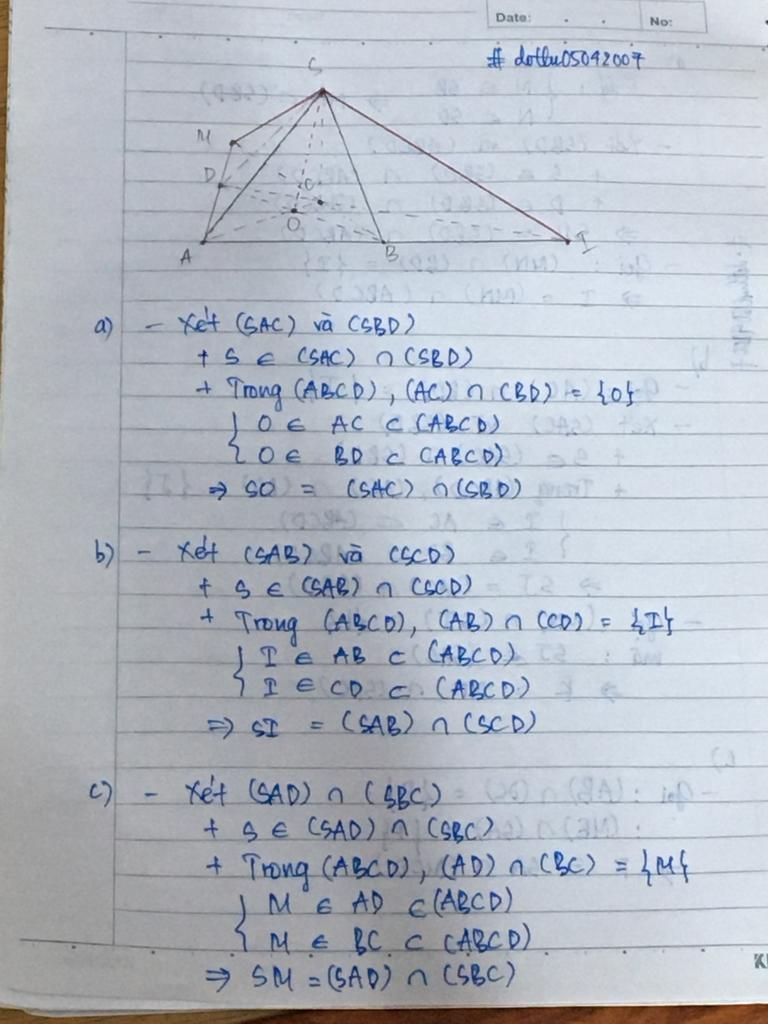 Date: . . No:
# dothu05042007
S
M
D
C
O
A
B
I
a) - Xét (SAC) và (SBD)
+ S ∈ (SAC) ∩ (SBD)
+ Trong (ABCD), (AC) ∩ (BD) = {O}
{ O ∈ AC ⊂ (ABCD)
{ O ∈ BD ⊂ (ABCD)
⇒ SO = (SAC) ∩ (SBD)
b) - Xét (SAB) và (SCD)
+ S ∈ (SAB) ∩ (SCD)
+ Trong (ABCD), (AB) ∩ (CD) = {I}
{ I ∈ AB ⊂ (ABCD)
{ I ∈ CD ⊂ (ABCD)
⇒ SI = (SAB) ∩ (SCD)
c) - Xét (SAD) ∩ (SBC)
+ S ∈ (SAD) ∩ (SBC)
+ Trong (ABCD), (AD) ∩ (BC) = {M}
{ M ∈ AD ⊂ (ABCD)
{ M ∈ BC ⊂ (ABCD)
⇒ SM = (SAD) ∩ (SBC)